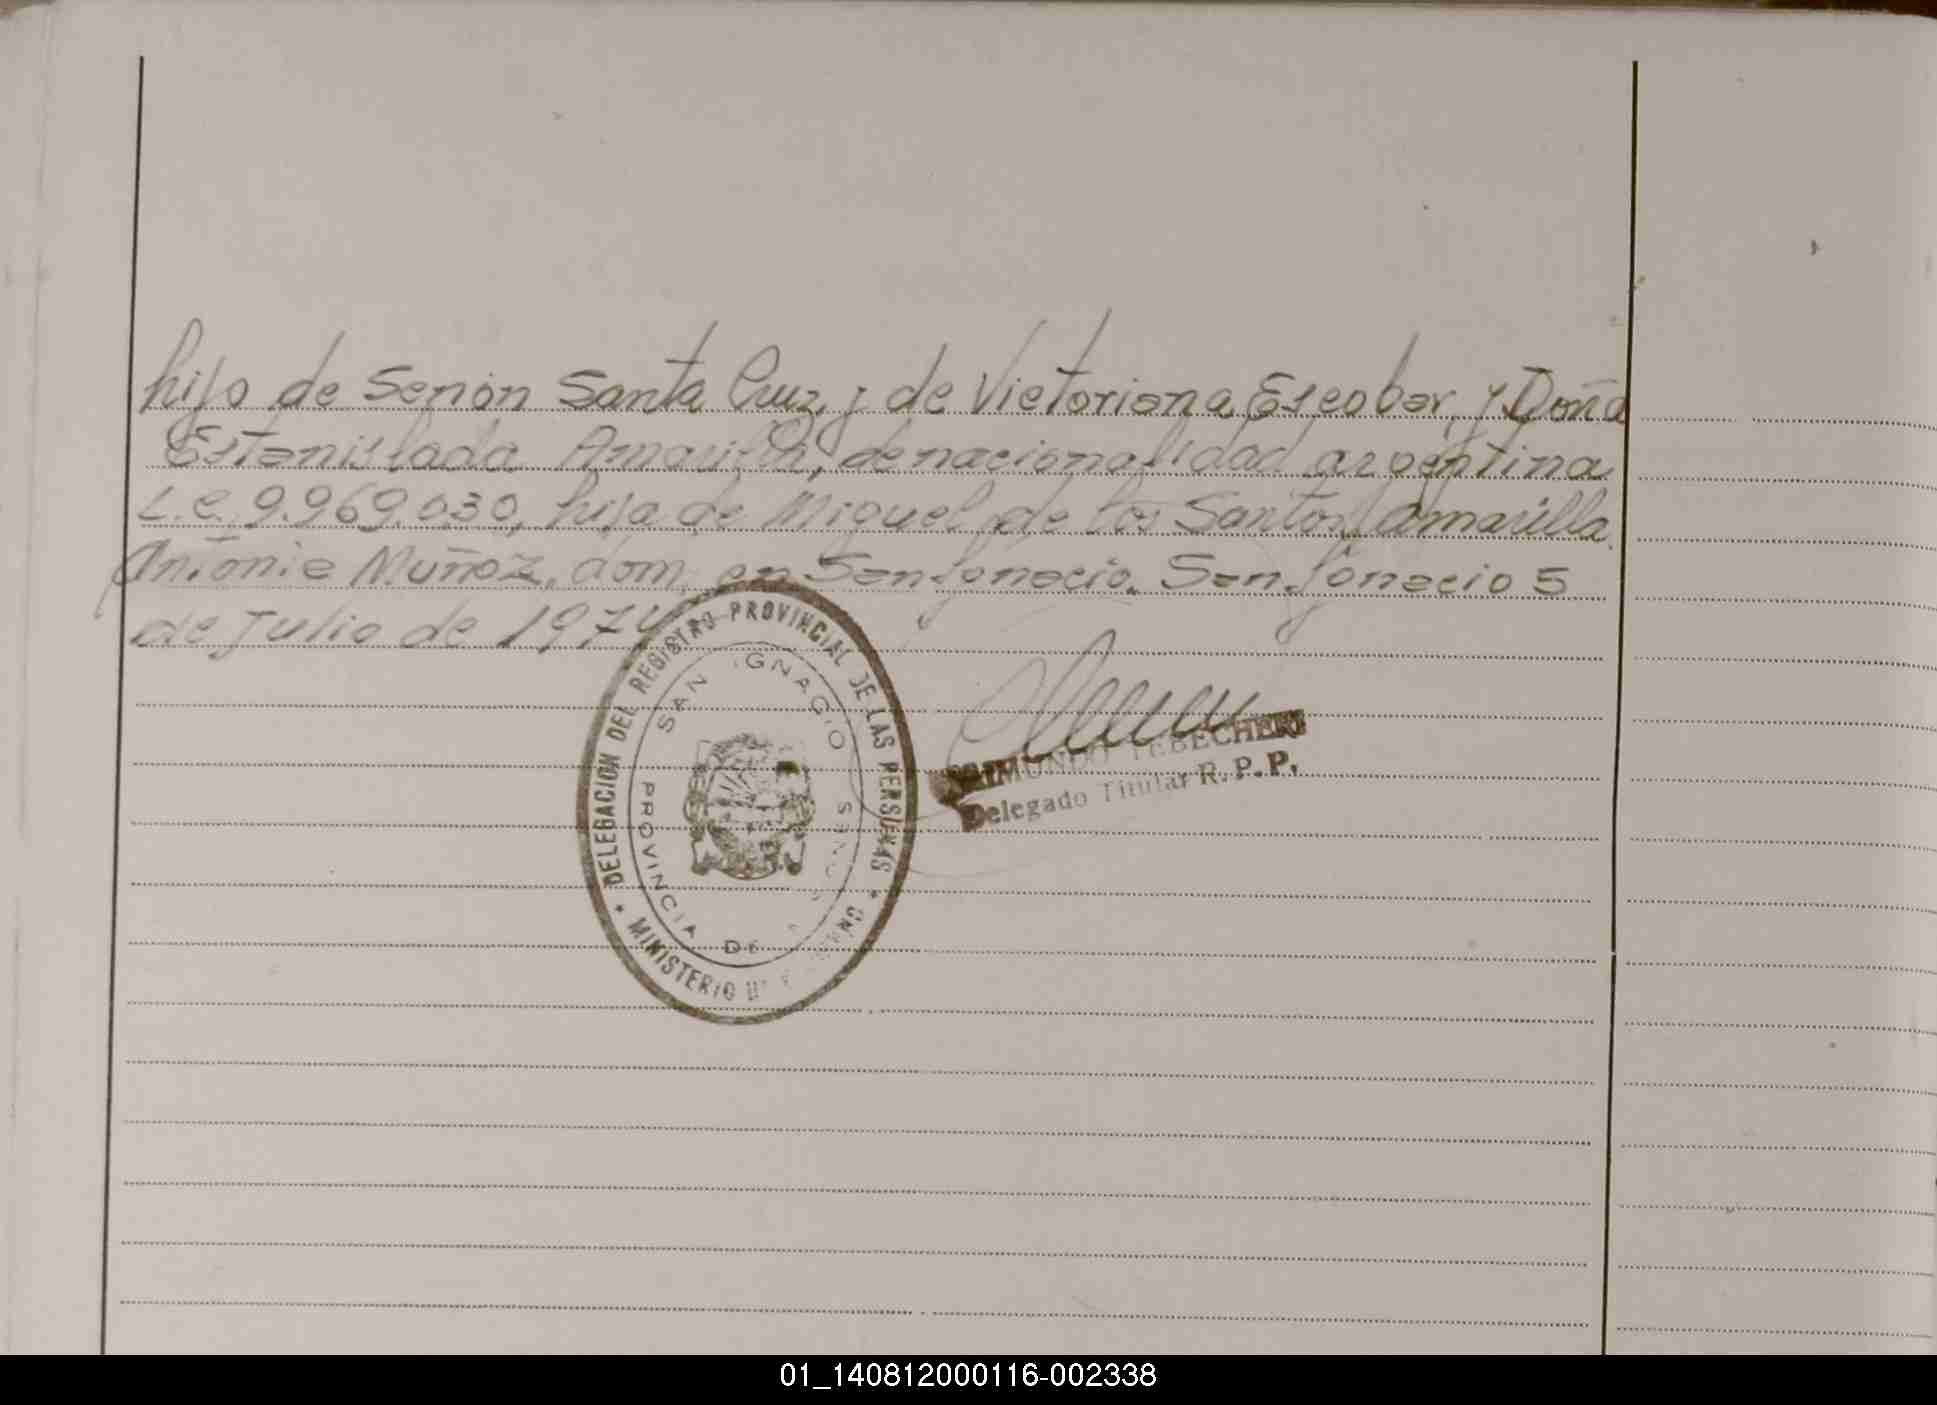 hijo de Senón Santa Cruz, y de Victoriana Escobar, y Doña
Estanislada Amarilla, de nacionalidad argentina
L.C. 9.969.030, hija de Miguel de los Santos Amarilla
Antonia Muñoz, dom. en San Ignacio. San Ignacio 5
de Julio de 1974
DELEGACION DEL REGISTRO PROVINCIAL DE LAS PERSONAS
SAN IGNACIO
PROVINCIA DE
MINISTERIO
RAIMUNDO TEBECHERI
Delegado Titular R.P.P.
01_140812000116-002338